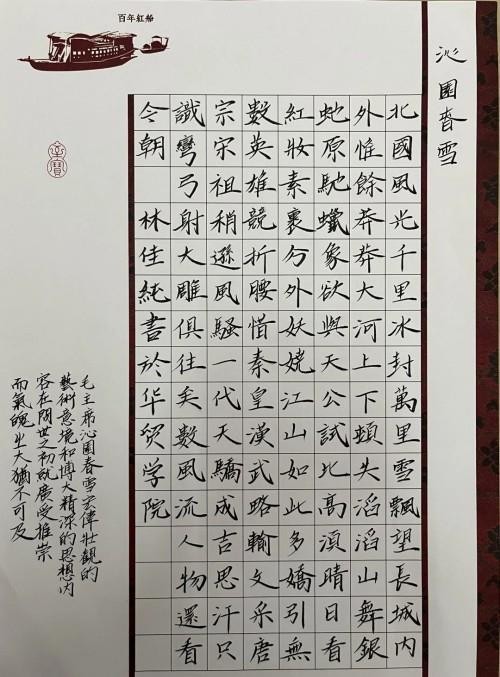 百年紅船
沁園春雪
北國風光千里冰封萬里雪飄望長城内
外惟餘莽莽大河上下頓失滔滔山舞銀
虵原馳蠟象欲與天公試比高須晴日看
紅妝素裹分外妖嬈江山如此多嬌引無
數英雄競折腰惜秦皇漢武略輸文采唐
宗宋祖稍遜風騷一代天驕成吉思汗只
識彎弓射大雕俱往矣數風流人物還看
今朝 林佳純書於华贸学院
毛主席沁園春雪宏偉壯觀的
藝術意境和博大精深的思想内
容在問世之初就廣受推崇
而氣魄之大猶不可及